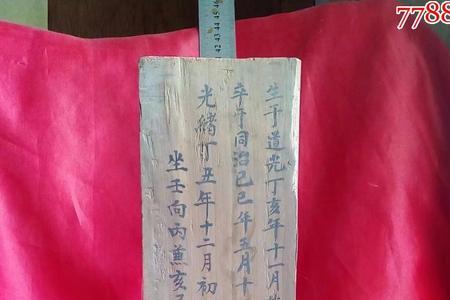 7788
生于道光丁亥年十一月
卒于同治己巳年五月十
光緒丁丑年十二月初
坐壬向丙兼亥